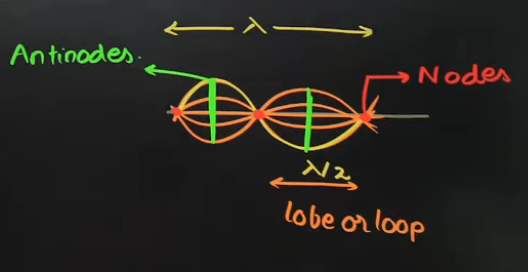 λ
Antinodes.
Nodes
λ/2
lobe or loop